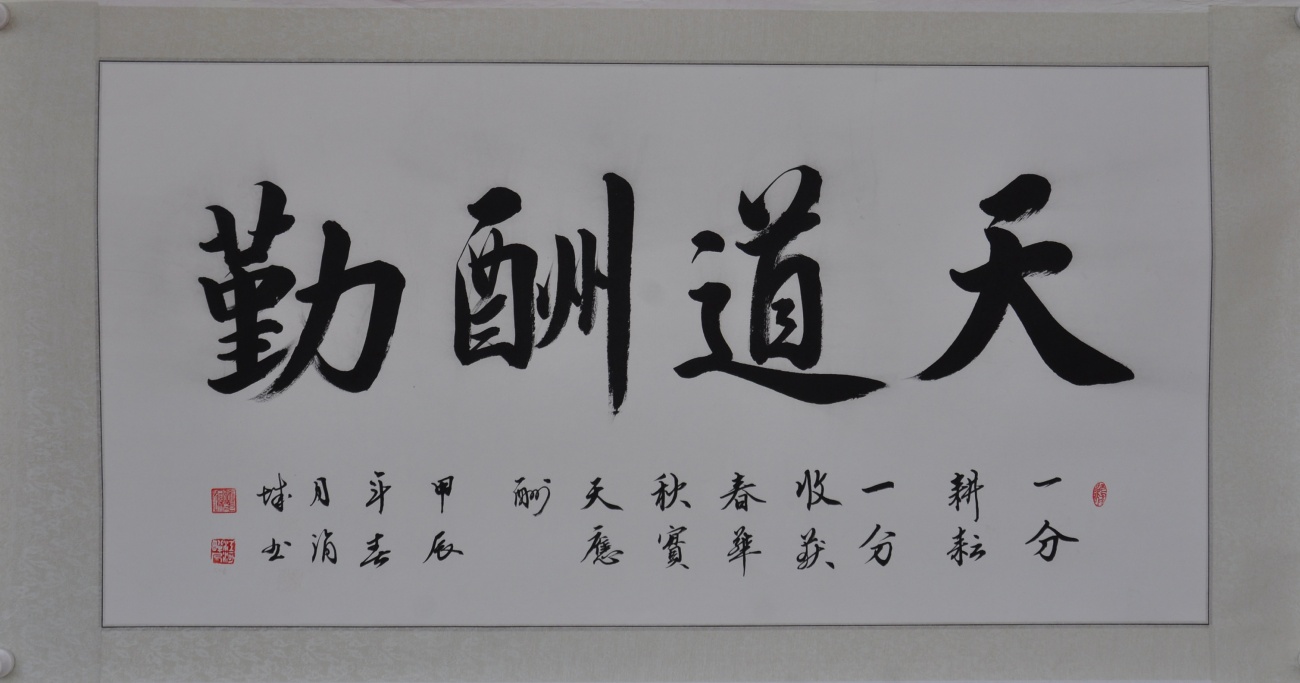 天道酬勤
一分
耕耘
一分
收获
春華
秋實
天應
酬
甲辰
年春
月
城书